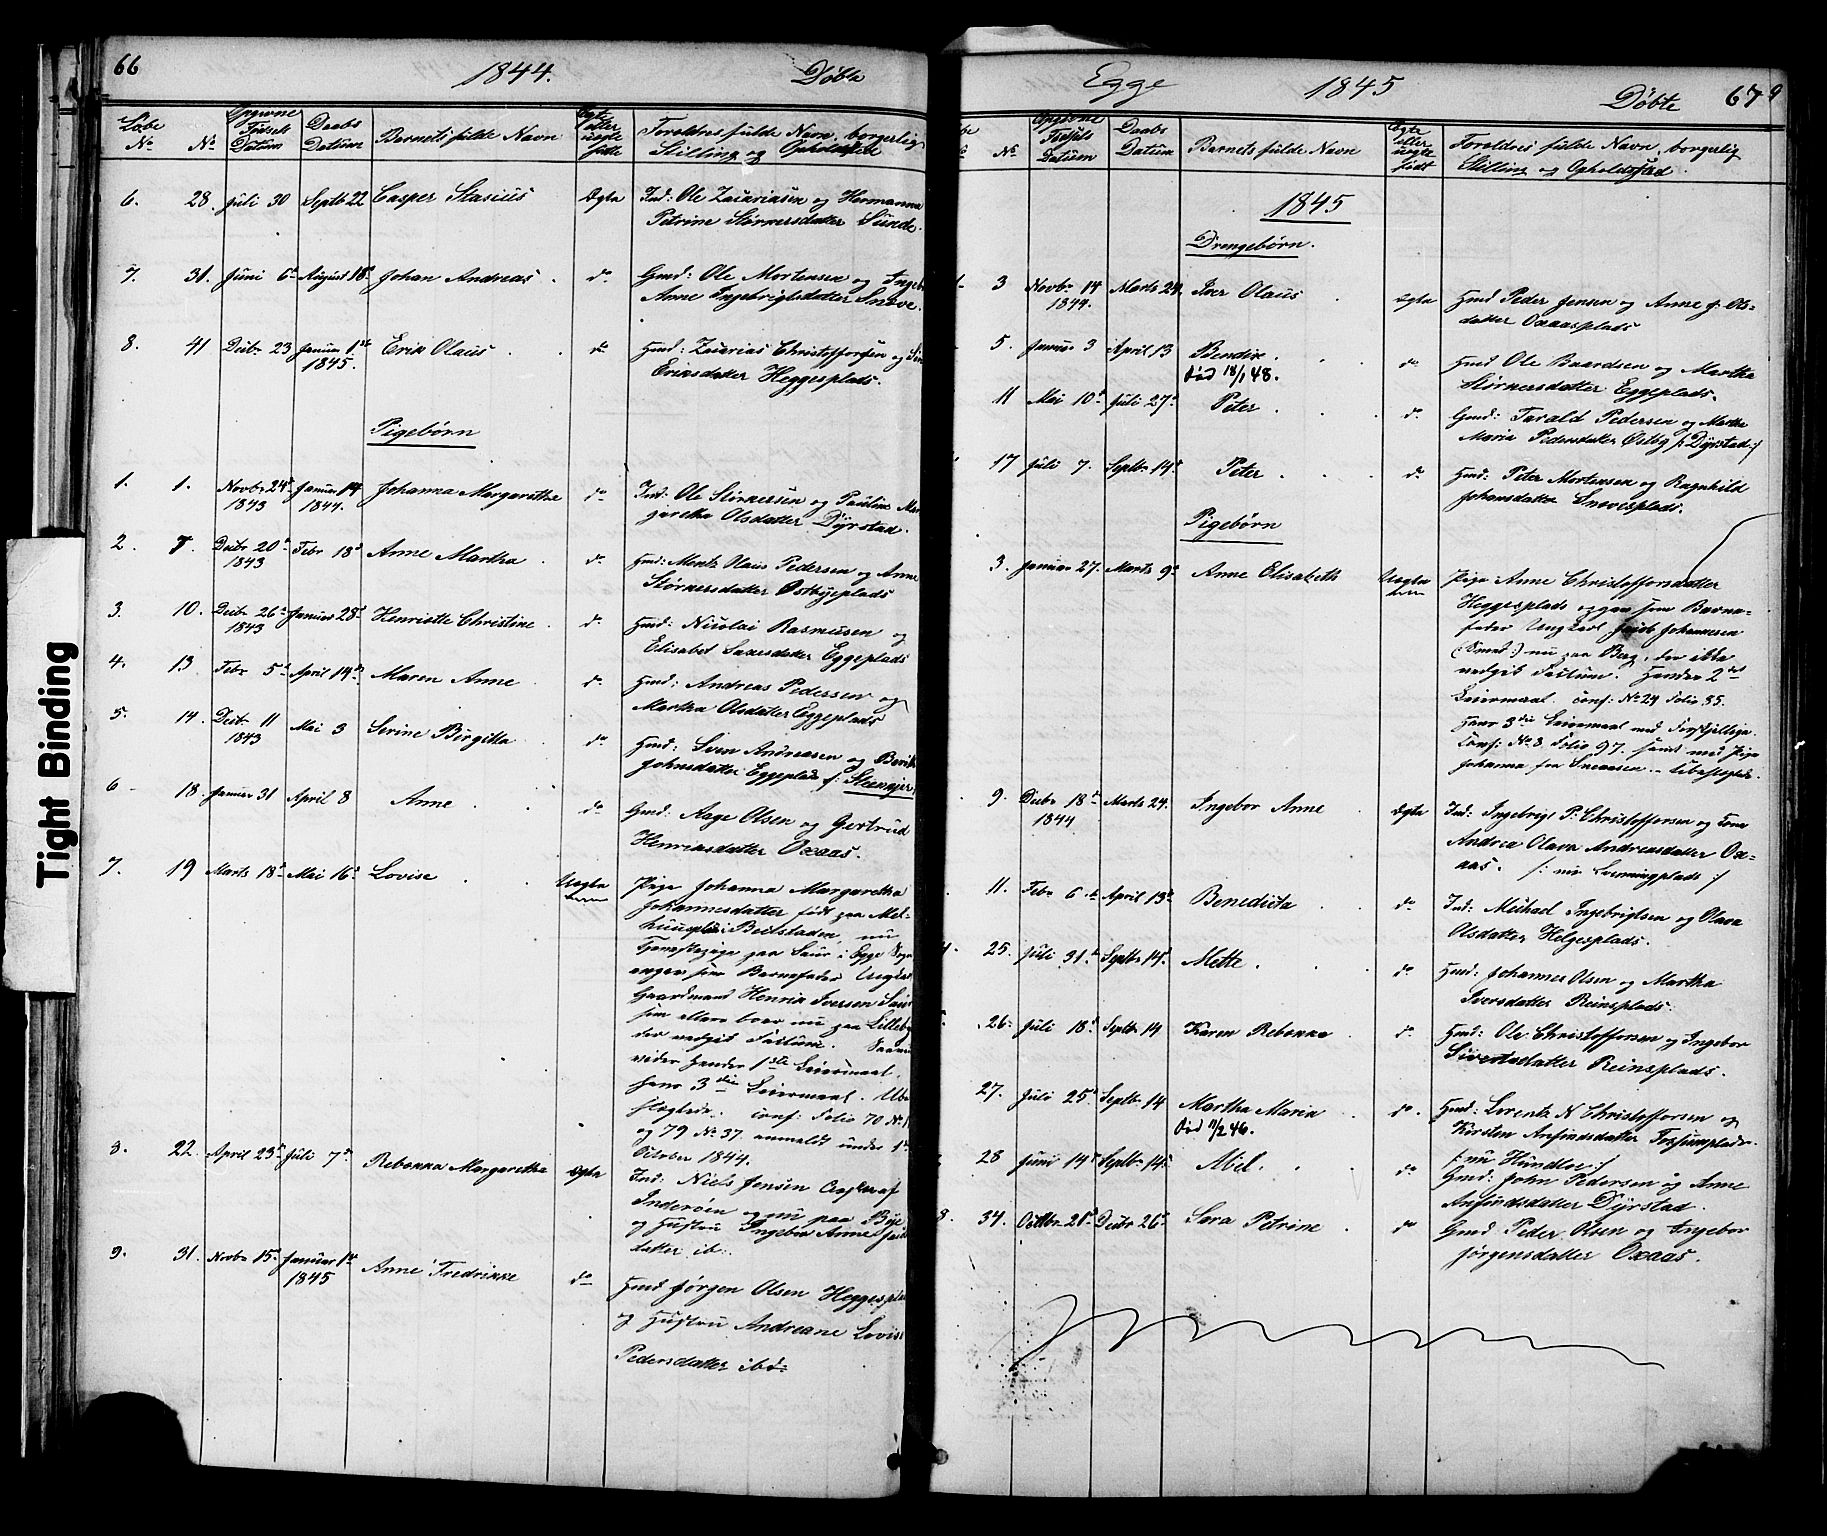 66 1844. Døbte
Løbe No No Opgivne Fødsels Datum Daabs Datum Barnets fulde Navn Ægte eller uægte Forældres fulde Navn, borgerlig Stilling og Opholdssted
6. 28. Juli 30 Septb 22 Casper Stasius Ægte Ind: Ole Zacariasen og Hermanna
Petrine Størkersdatter Sunde.
7. 31. Juni 6te August 18d Johan Andreas do Gmd: Ole Mortensen og
Anne Ingebrigtsdatter Snøve.
8. 41 Decbr 23 Januar 1ste Erik Olaus do Hmd: Zacarias Christoffersen og
1845. Eriksdatter Heggesplads.
Pigebørn
1. 1. Novbr 24d Januar 14 Johanna Margarethe do Ind: Ole Størkersen og Pauline Mar
1843 1844. garetha Olsdatter Dyrstad.
2. 7. Decbr 20d Febr 18d Anne Martha do Hmd: Mentz Olaus Pedersen og Anne
1843 Størkersdatter Østbyeplads
3. 10. Decbr 26d Januar 28d Henriette Christine do Hmd: Nicolai Rasmusen og
1843 Elisabet Larsdatter Eggeplads
4. 13 Febr 5d April 14d Maren Anne do Hmd: Andreas Pedersen og
Martha Olsdatter Eggeplads
5. 14. Decbr 11 Mai 3 Serine Birgitta do Hmd: Sven Andreasen og Berit
1843 Johnsdatter Eggeplads /: Steenkjer
6 18. Januar 31 April 8 Anne do Gmd: Aage Olsen og Gertrud
Henriksdatter Oxaas.
7. 19 Marts 18d Mai 16d Lovise Uægte Pige Johanna Margaretha
Johannesdatter født paa Mel-
huusplds i Beitstaden, nu
Tjenestepige paa Saur i Egge Sogn
angav som Barnefader Ungkarl
Gaardmand Henrik Iversen Saur
som ellers boer nu paa Lilleby
der vedgik Factum.
vider Hendes 1ste Leiermaal,
hans 3die Leiermaal. Ube
slægtede. conf: Folio 70 No 1
og 79 No 37. anmeldt under 1ste
October 1844.
8. 22. April 23d Juli 7d Rebekka Margaretha Ægte Ind: Niels Jensen af
Inderøen og nu paa Bye
og Hustru Ingebor Anne
datter ib:
9. 31. Novbr 15d Januar 1ste Anne Fredrikke do Hmd Jørgen Olsen Heggespla
1845 og Hustru Andreane Lovise
Pedersdatter ibd
Egge 1845 Døbte 67
No Opgivne Fødsels Datum Daabs Datum Barnets fulde Navn Ægte eller uægte født Forældres fulde Navn, borgerlig Stilling og Opholdssted.
1845
Drengebørn.
3 Novbr 14 Marts 24. Iver Olaus Ægte Hmd Peder Jensen og Anne J. Ols-
1844. datter Oxaasplads
5. Januar 3 April 13 Bendix do Hmd Ole Baardsen og Martha
død 18/1 48. Størkersdatter Eggeplads.
11 Mai 10d Juli 27d Peter do Gmd: Tarald Pedersen og Martha
Maria Pedersdatter Østby /: Dyrstad :/
17 Juli 7. Septbr 14d Peter do Hmd: Peter Mortensen og Ragnhild
Johansdatter Snøvesplads.
Pigebørn
3. Januar 27. Marts 9d Anne Elisabeth Uægte Pige Anne Christoffersdatter
Heggesplads opgav som Barne-
fader Ungkarl Jacob Johannesen
(:Smed:) nu paa Berg, der ikke
vedgik Factum. Hendes 2det
Leiermaal conf: No 24 Folio 85.
Hans 3die Leiermaal med forskjellige
Conf: No 8. Folio 97. samt med Pige
Johanna fra Snaasen. - Ubeslægtede.
9. Decbr 18d Marts 24. Ingebor Anne Ægte Ind: Ingebrigt P. Christoffersen og
1844 Andrea Olava Andreasdatter Ox-
aas. /: nu Lorningplads :/
11. Febr 6te April 13d Benedicta do Ind: Michael Ingebrigtsen og Olava
Olsdatter Helgesplads.
25. Juli 31d Septbr 14d Mette do Hmd: Johannes Olsen og Martha
Iversdatter Reinsplads.
26. Juli 18d Septbr 14 Karen Rebekka do Hmd: Ole Christoffersen og Ingebor
Sivertsdatter Reinsplads.
27. Juli 25d Septbr 14 Martha Maria do. Hmd: Lorentz N Christoffersen og
død 11/2 46. Kirsten Anfindsdatter
/: nu Hundloe :/
28 Juni 14d Septbr 14d Abel. do Gmd: John Pedersen og Anne
Anfindsdatter Dyrstad.
8. 34. Octbr 21d Decbr 26d Sara Petrine do Gmd Peder Olsen og Ingebor
Jørgensdatter Oxaas.
Tight Binding